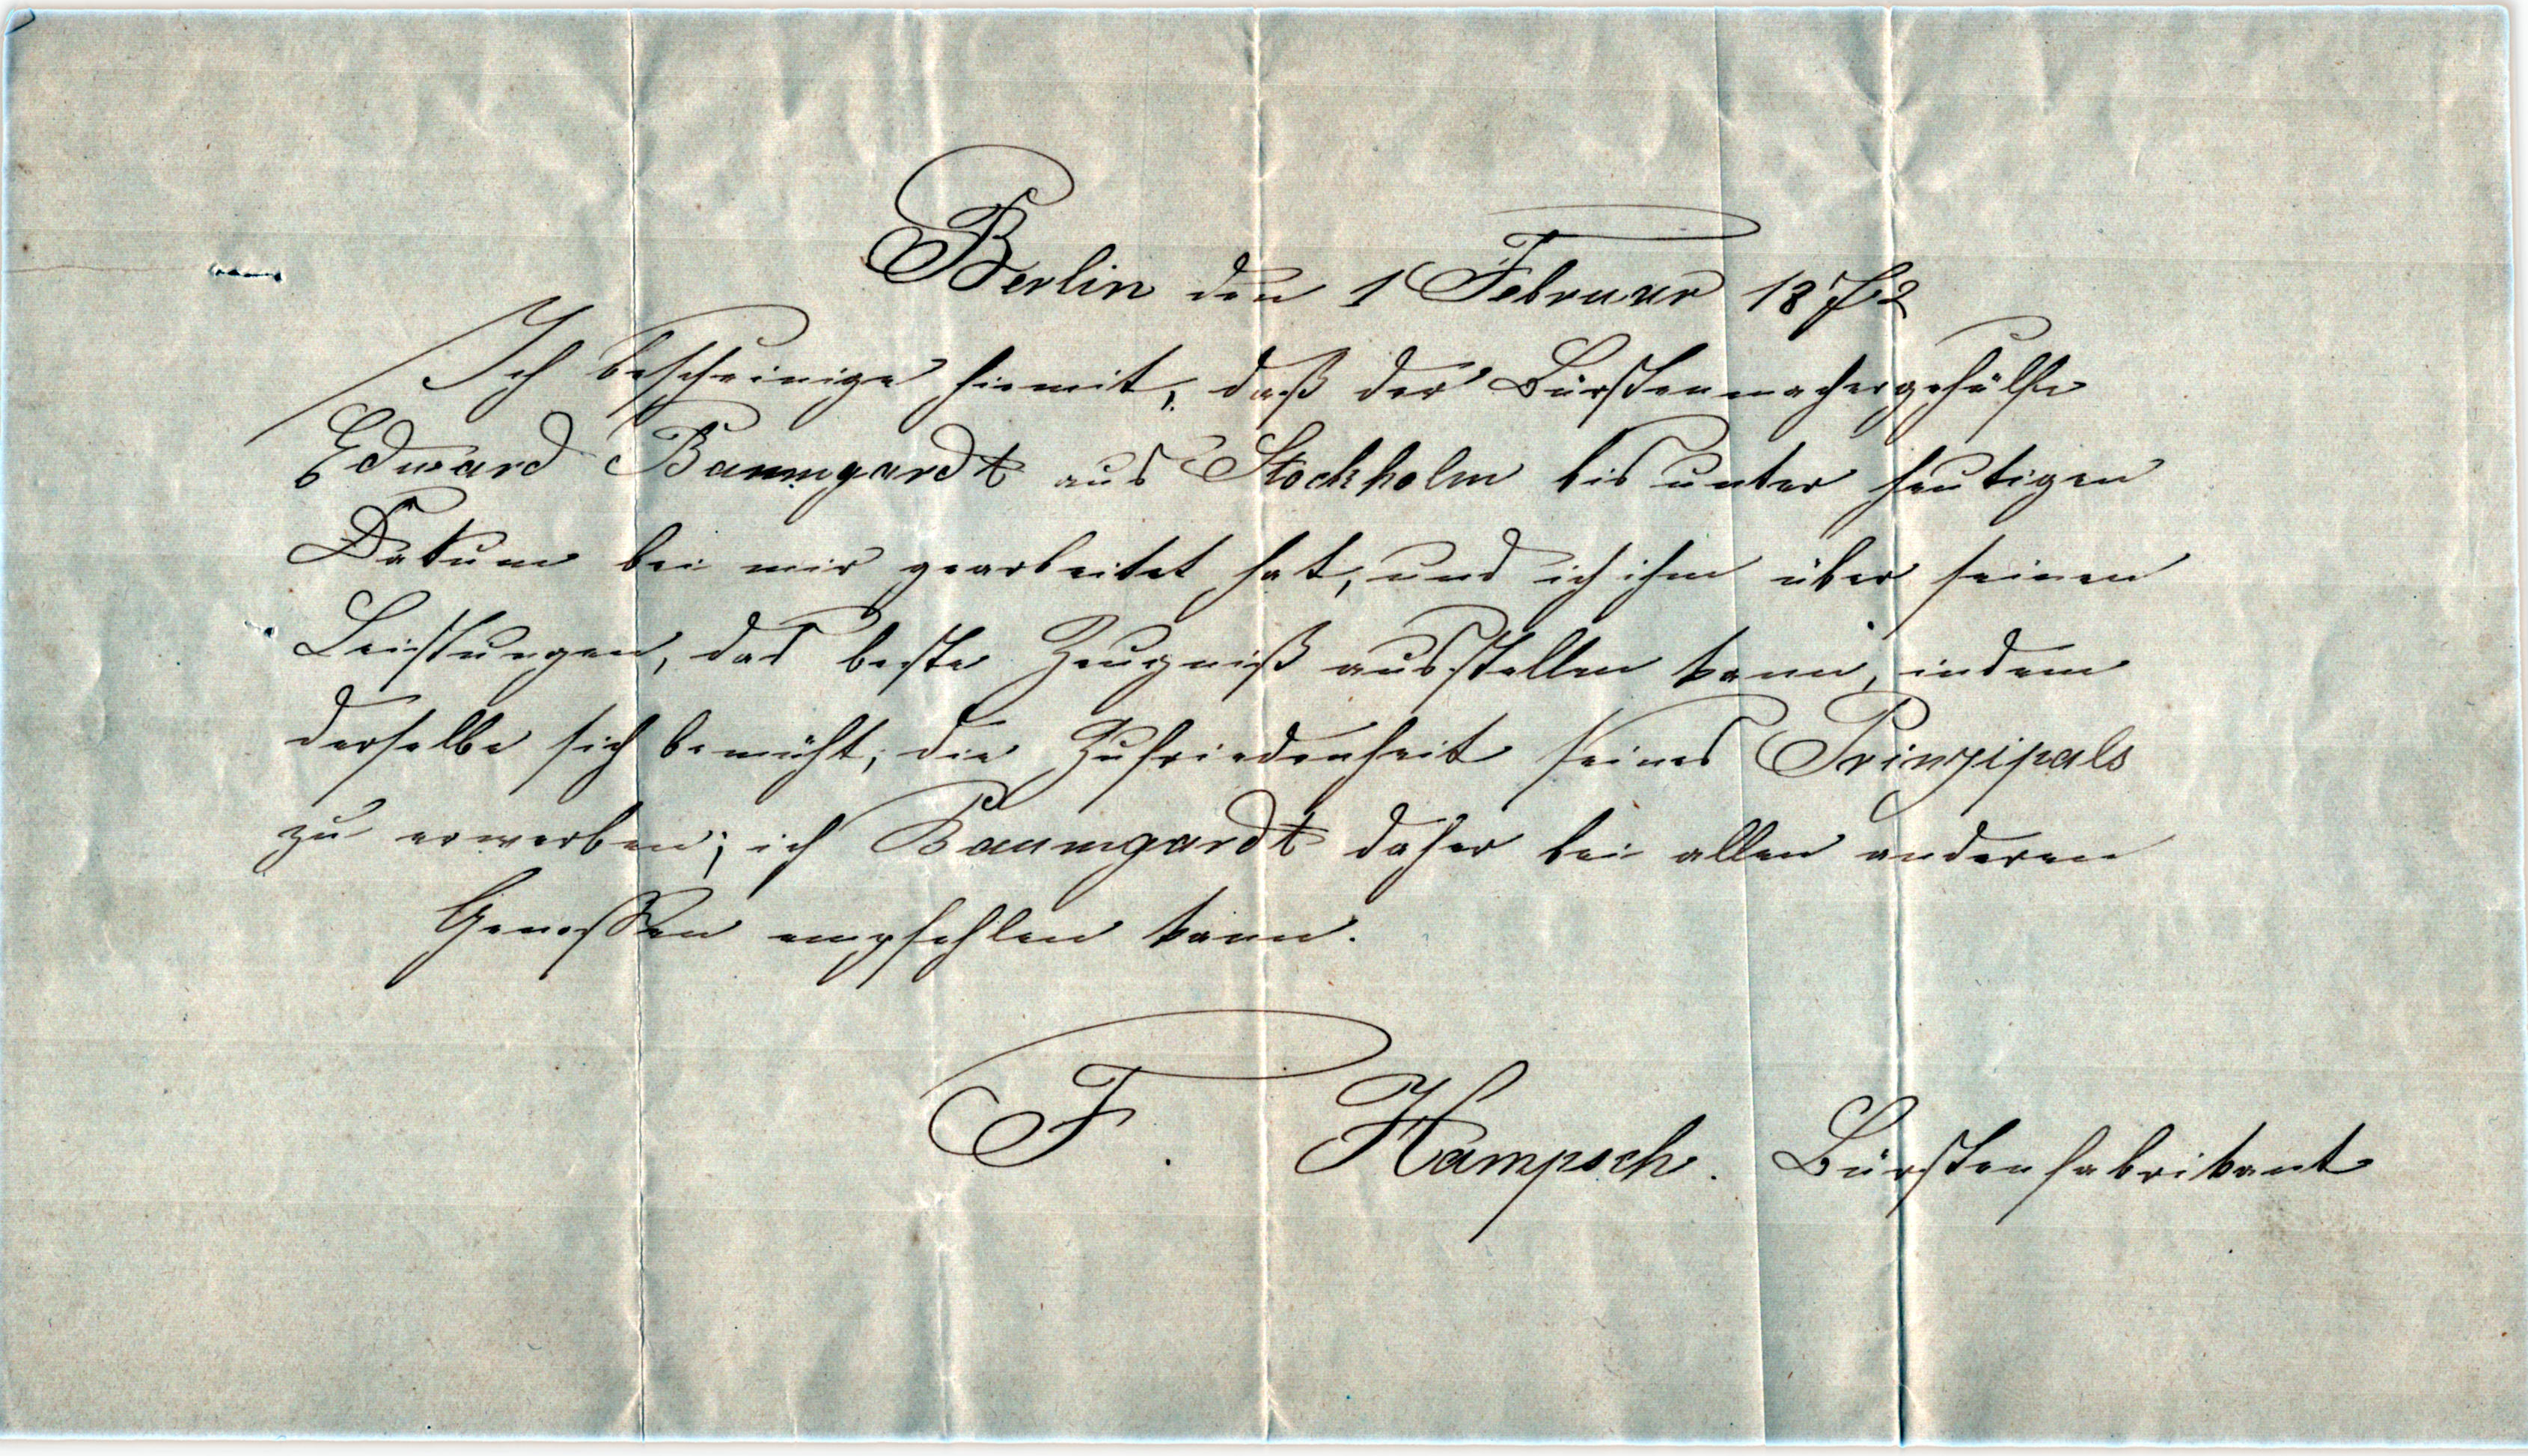 Berlin den 1 Februar 1872
Ich bescheinige hiemit, daß der Bürstenmachergehülfe
Edward Baumgardt aus Stockholm bis unter heutigen
Datum bei mir gearbeitet hat, und ich ihm über seinen
Leistungen, das beste Zeugniß ausstellen kann, indem
derselbe sich bemüht, die Zufriedenheit seines Prinzipals
zu erwerben; ich Baumgardt daher bei allen anderen
Genossen empfehlen kann.
F. Hampsch. Bürstenfabrikant